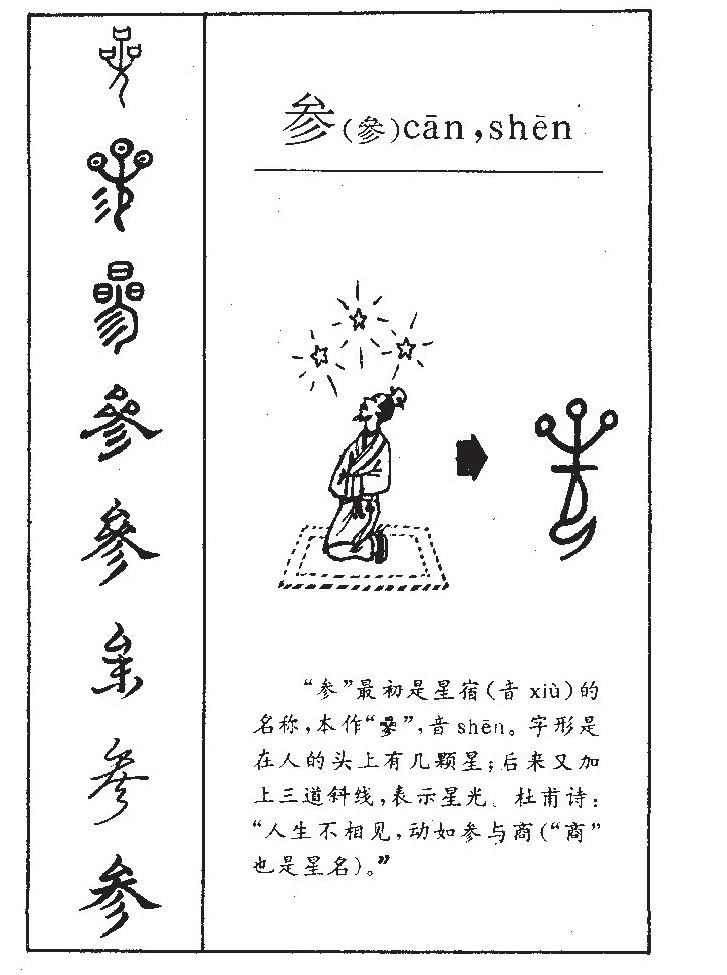 參
參
参
参(參)cān,shēn
“参”最初是星宿(音 xiù)的
名称,本作“曑”,音shēn。字形是
在人的头上有几颗星;后来又加
上三道斜线,表示星光。杜甫诗:
“人生不相见,动如参与商(“商”
也是星名)。”